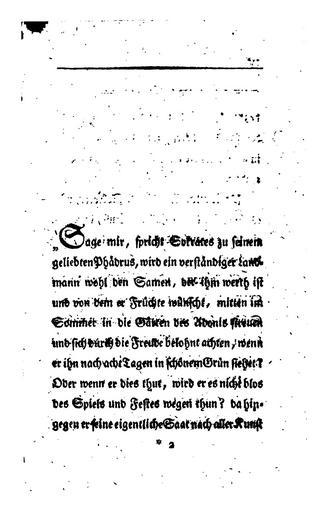 „Sage mir, spricht Sokrates zu seinem
geliebten Phädrus, wird ein verständiger Land-
mann wohl den Samen, der ihm werth ist
und von dem er Früchte wünscht, mitten im
Sommer in die Gärten des Adonis streuen
und sich durch die Freude belohnt achten, wenn
er ihn nach acht Tagen in schönem Grün siehet?
Oder wenn er dies thut, wird er es nicht blos
des Spiels und Festes wegen thun? da hin-
gegen er seine eigentliche Saat nach aller Kunst
* 2